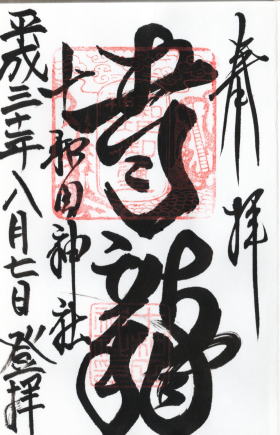 奉拝
青龍
十和田神社
平成三十年八月七日 登拝